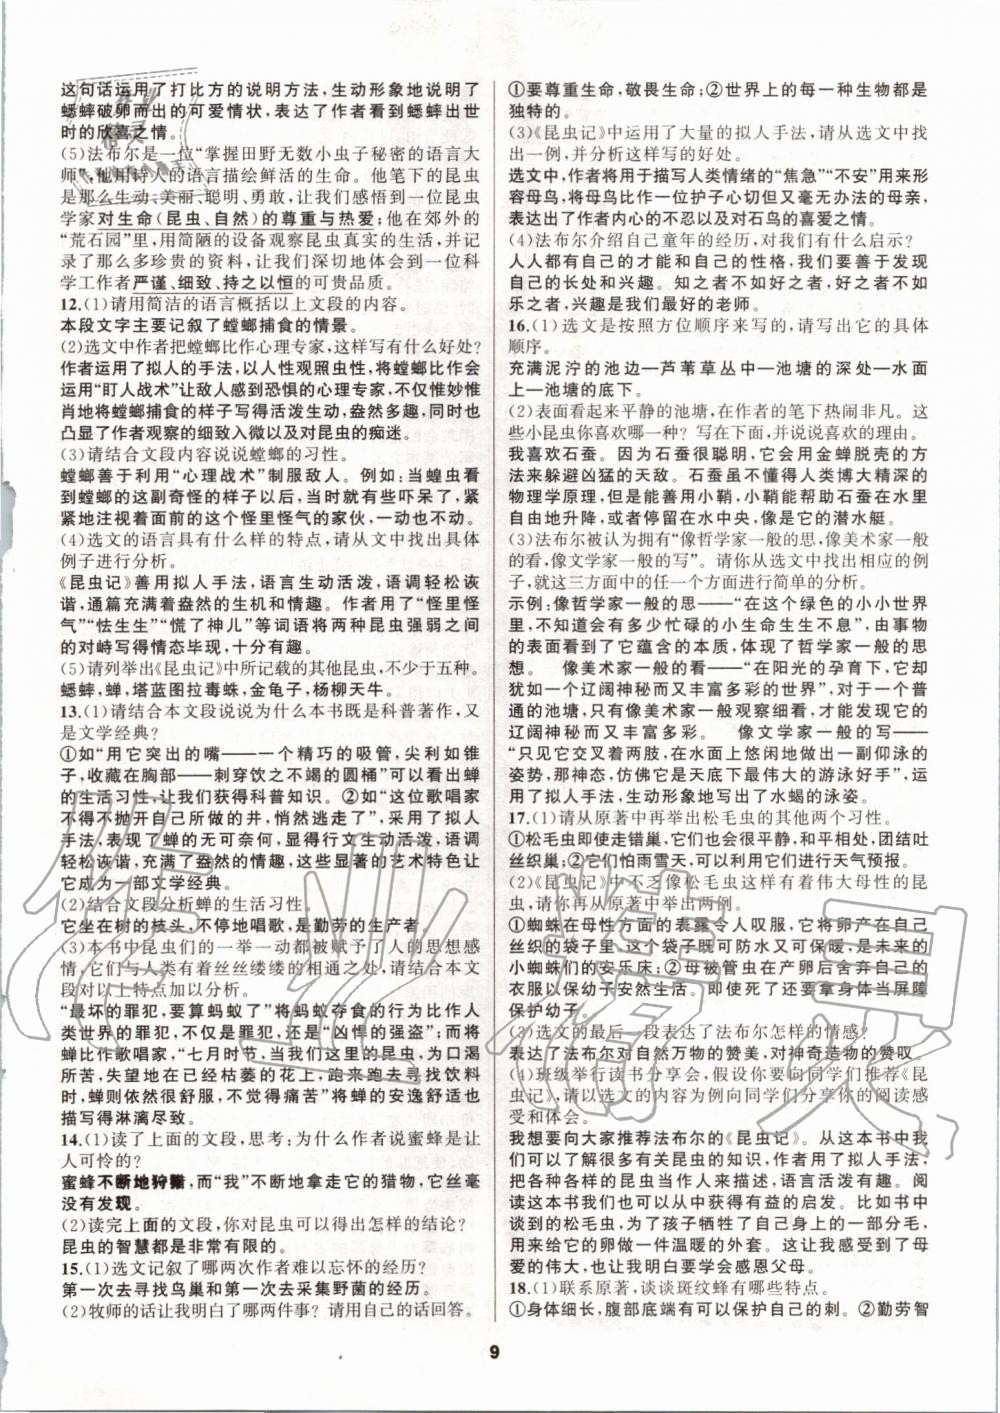 这句话运用了打比方的说明方法，生动形象地说明了
蟋蟀破卵而出的可爱情状，表达了作者看到蟋蟀出世
时的欣喜之情。
(5)法布尔是一位“掌握田野无数小虫子秘密的语言大
师”，他用诗人的语言描绘鲜活的生命。他笔下的昆虫
是那么生动：美丽、聪明、勇敢，让我们感受到一位昆虫
学家对生命(昆虫、自然)的尊重与热爱；他在郊外的
“荒石园”里，用简陋的设备观察昆虫真实的生活，并记
录了那么多珍贵的资料，让我们深切地体会到一位科
学工作者严谨、细致、持之以恒的可贵品质。
12.(1)请用简洁的语言概括以上文段的内容。
本段文字主要记叙了螳螂捕食的情景。
(2)选文中作者把螳螂比作心理专家，这样写有什么好处？
作者运用了拟人的手法，以人性观照虫性，将螳螂比作会
运用“盯人战术”让敌人感到恐惧的心理专家，不仅惟妙惟
肖地将螳螂捕食的样子写得活泼生动，盎然多趣，同时也
凸显了作者观察的细致入微以及对昆虫的痴迷。
(3)请结合文段内容说说螳螂的习性。
螳螂善于利用“心理战术”制服敌人。例如：当蝗虫看
到螳螂的这副奇怪的样子以后，当时就有些吓呆了，紧
紧地注视着面前的这个怪里怪气的家伙，一动也不动。
(4)选文的语言具有什么样的特点，请从文中找出具体
例子进行分析。
《昆虫记》善用拟人手法，语言生动活泼，语调轻松诙
谐，通篇充满着盎然的生机和情趣。作者用了“怪里怪
气”“怯生生”“慌了神儿”等词语将两种昆虫强弱之间
的对峙写得情态毕现，十分有趣。
(5)请列举出《昆虫记》中所记载的其他昆虫，不少于五种。
蟋蟀，蝉，塔蓝图拉毒蛛，金龟子，杨柳天牛。
13.(1)请结合本文段说说为什么本书既是科普著作，又
是文学经典？
①如“用它突出的嘴——一个精巧的吸管，尖利如锥
子，收藏在胸部——刺穿饮之不竭的圆桶”可以看出蝉
的生活习性，让我们获得科普知识。②如“这位歌唱家
不得不抛开自己所做的井，悄然逃走了”，采用了拟人
手法，表达了蝉的无可奈何，显得行文生动活泼，语调
轻松诙谐，充满了盎然的情趣，这些显著的艺术特色让
它成为一部文学经典。
(2)结合文段分析蝉的生活习性。
它坐在树的枝头，不停地唱歌，是勤劳的生产者。
(3)本书中昆虫们的一举一动都被赋予了人的思想感
情，它们与人类有着丝丝缕缕的相通之处，请结合本文
段对以上特点加以分析。
“最坏的罪犯，要算蚂蚁了”将蚂蚁夺食的行为比作人
类世界的罪犯，不仅是罪犯，还是“凶悍的强盗”；而将
蝉比作歌唱家，“七月时节，当我们这里的昆虫，为口渴
所苦，失望地在已经枯萎的花上，跑来跑去寻找饮料
时，蝉则依然很舒服，不觉得痛苦”将蝉的安逸舒适也
描写得淋漓尽致。
14.(1)读了上面的文段，思考：为什么作者说蜜蜂是让
人可怜的？
蜜蜂不断地狩猎，而“我”不断地拿走它的猎物，它丝毫
没有发现。
(2)读完上面的文段，你对昆虫可以得出怎样的结论？
昆虫的智慧都是非常有限的。
15.(1)选文记叙了哪两次作者难以忘怀的经历？
第一次去寻找鸟巢和第一次去采集野菌的经历。
(2)牧师的话让我明白了哪两件事？请用自己的话回答。
①要尊重生命，敬畏生命；②世界上的每一种生物都是
独特的。
(3)《昆虫记》中运用了大量的拟人手法，请从选文中找
出一例，并分析这样写的好处。
选文中，作者将用于描写人类情绪的“焦急”“不安”用来形
容母鸟，将母鸟比作一位护子心切但又毫无办法的母亲，
表达出了作者内心的不忍以及对石鸟的喜爱之情。
(4)法布尔介绍自己童年的经历，对我们有什么启示？
人人都有自己的才能和自己的性格，我们要善于发现
自己的长处和兴趣。知之者不如好之者，好之者不如
乐之者，兴趣是我们最好的老师。
16.(1)选文是按照方位顺序来写的，请写出它的具体
顺序。
充满泥泞的池边—芦苇草丛中—池塘的深处—水面
上—池塘的底下。
(2)表面看起来平静的池塘，在作者的笔下热闹非凡。这
些小昆虫你喜欢哪一种？写在下面，并说说喜欢的理由。
我喜欢石蚕。因为石蚕很聪明，它会用金蝉脱壳的方
法来躲避凶猛的天敌。石蚕虽不懂得人类博大精深的
物理学原理，但是能善用小鞘，小鞘能帮助石蚕在水里
自由地升降，或者停留在水中央，像是它的潜水艇。
(3)法布尔被认为拥有“像哲学家一般的思，像美术家一般
的看，像文学家一般的写”。请你从选文中找出相应的例
子，就这三方面中的任一方面进行简单的分析。
示例：像哲学家一般的思——“在这个绿色的小小世界
里，不知道会有多少忙碌的小生命生生不息”，由事物
的表面看到了它蕴含的本质，体现了哲学家一般的思
想。　像美术家一般的看——“在阳光的孕育下，它却
犹如一个辽阔神秘而又丰富多彩的世界”，对于一个普
通的池塘，只有像美术家一般观察细看，才能发现它的
辽阔神秘而又丰富多彩。　像文学家一般的写——
“只见它交叉着两肢，在水面上悠闲地做出一副仰泳的
姿势，那神态，仿佛它是天底下最伟大的游泳好手”，运
用了拟人手法，生动形象地写出了水蝎的泳姿。
17.(1)请从原著中再举出松毛虫的其他两个习性。
①松毛虫即使走错巢，它们也会很平静，和平相处，团结吐
丝织巢；②它们怕雨雪天，可以利用它们进行天气预报。
(2)《昆虫记》中不乏像松毛虫这样有着伟大母性的昆
虫，请你再从原著中举出两例。
①蜘蛛在母性方面的表露令人叹服，它将卵产在自己
丝织的袋子里，这个袋子既可防水又可保暖，是未来的
小蜘蛛们的安乐床；②母被管虫在产卵后舍弃自己的
衣服以保幼子安然生活。即使死了还要拿身体当屏障
保护幼子。
(3)选文的最后一段表达了法布尔怎样的情感？
表达了法布尔对自然万物的赞美，对神奇造物的赞叹。
(4)班级举行读书分享会，假设你要向同学们推荐《昆
虫记》，请以选文的内容为例向同学们分享你的阅读感
受和体会。
我想要向大家推荐法布尔的《昆虫记》。从这本书中我
们可以了解很多有关昆虫的知识，作者用了拟人手法，
把这些各种各样的昆虫当作人来描述，语言活泼有趣。阅
读这本书我们可以从中获得有益的启发。比如书中
谈到的松毛虫，为了孩子牺牲了自己身上的一部分毛，
来给它的卵做一件温暖的外套。这让我感受到了母
爱的伟大，也让我明白我们要学会感恩父母。
18.(1)联系原著，谈谈斑纹蜂有哪些特点。
①身体细长，腹部底端有可以保护自己的刺。②勤劳智
9
作业精灵